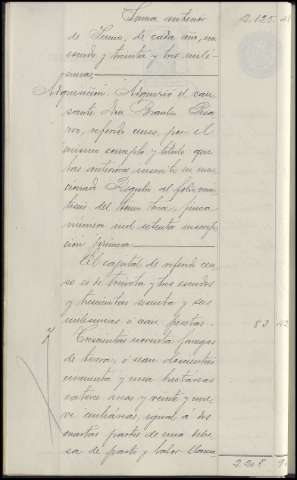 Suma anterior 2.125.
de Junio, de cada año, un
escudo y treinta y tres milé-
simas
Adquisicion. Adquirió el cau-
sante Don Braulio
referido censo, por el
mismo concepto y título que
las anteriores inscrito en men-
cionado Registro al folio
del tomo finca
número mil setenta inscrip-
ción primera
El capital de referido cen-
so es de treinta y tres escudos
y trescientas sesenta y seis
milésimas ó sean pesetas. 83 42
7 Trescientas noventa fanegas
de tierra, ó sean doscientas
cincuenta y una hectáreas
catorce areas y veinte y nue-
ve centiáreas, igual á dos
cuartas partes de una dehe-
sa de pasto y labor llama-
2.208